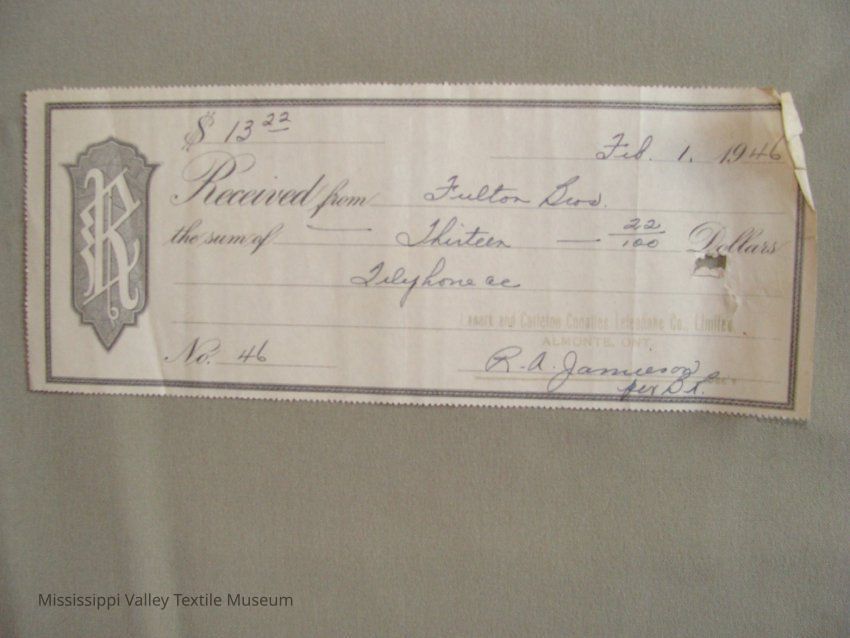 $ 13 22
Feb. 1, 1946
Received from Fulton Bros.
the sum of Thirteen — 22/100 Dollars
Telephone ac
Lanark and Carleton Counties Telephone Co., Limited
ALMONTE, ONT.
No. 46
R. A. Jamieson
per
Mississippi Valley Textile Museum